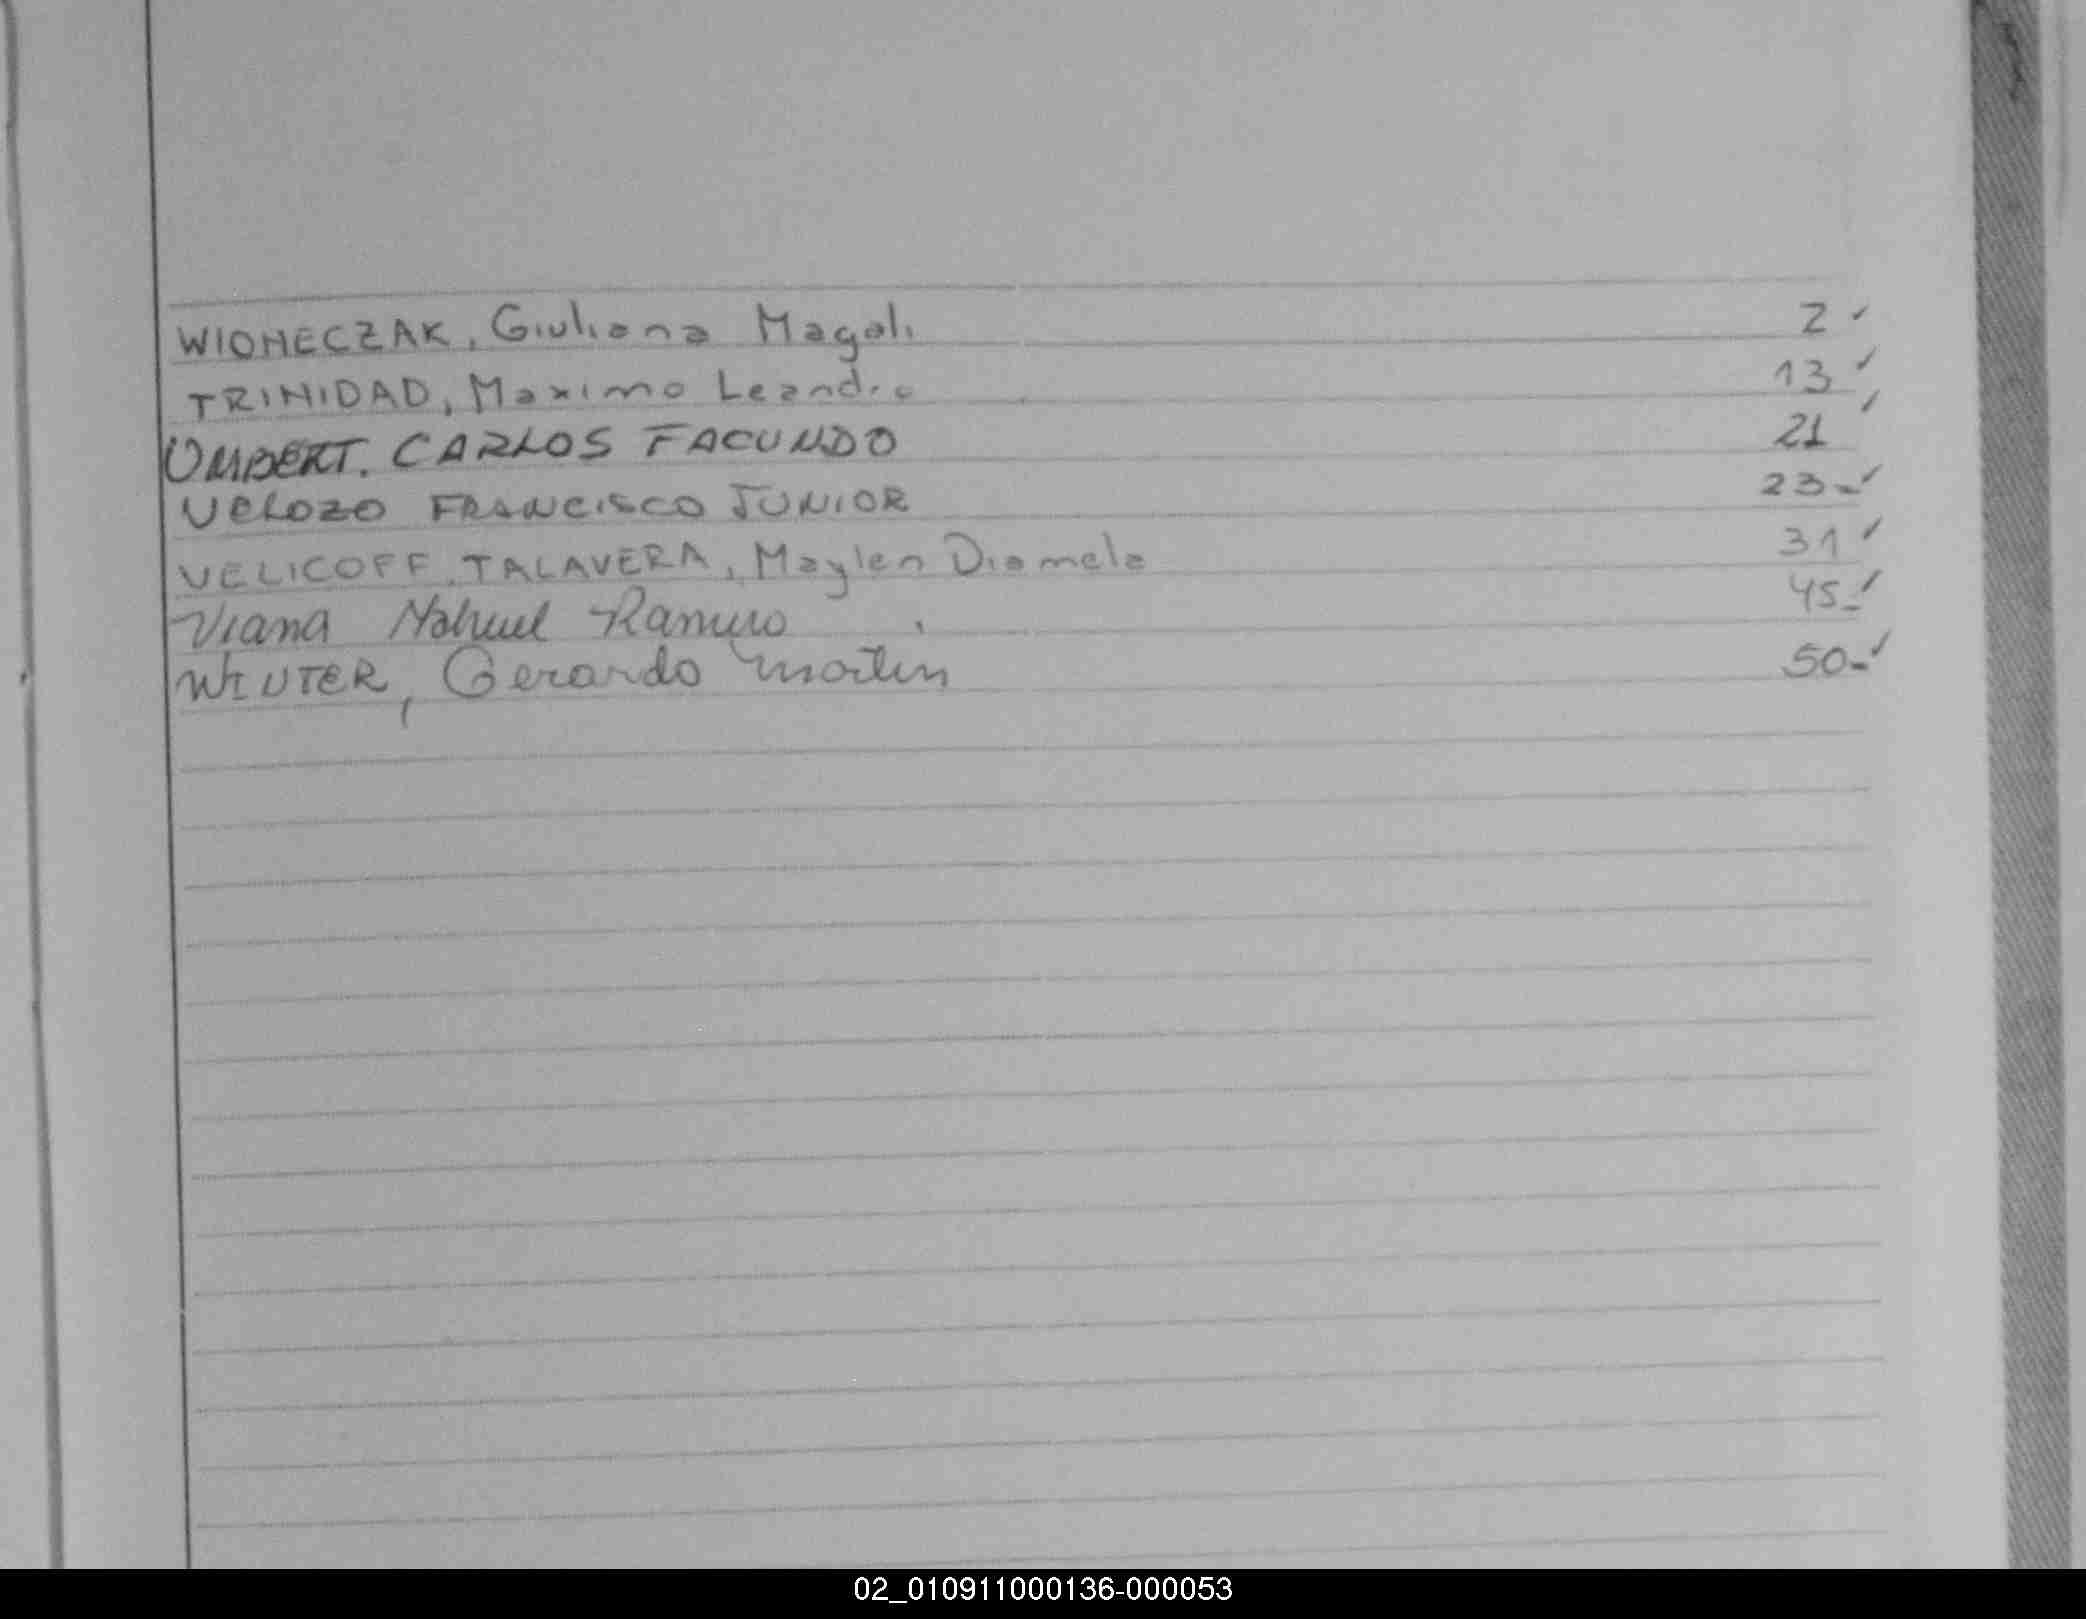 WIONECZAK, Giuliana Magali 2 ✓
TRINIDAD, Maximo Leandro 13 ✓
UMBERT. CARLOS FACUNDO 21 ✓
VELOZO FRANCISCO JUNIOR 23-✓
VELICOFF, TALAVERA, Maylen Diamela 31 ✓
Viana Nahuel Ramiro 45-✓
WINTER, Gerardo Martin 50-✓
02_010911000136-000053